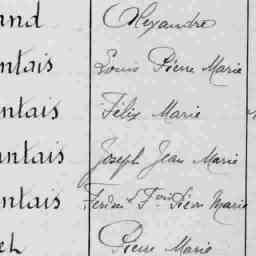 and Alexandre
ntais Louis Pierre Marie
ntais Félix Marie
antais Joseph Jean Marie
ntais Ferdind Fois Pierre Marie
et Pierre Marie